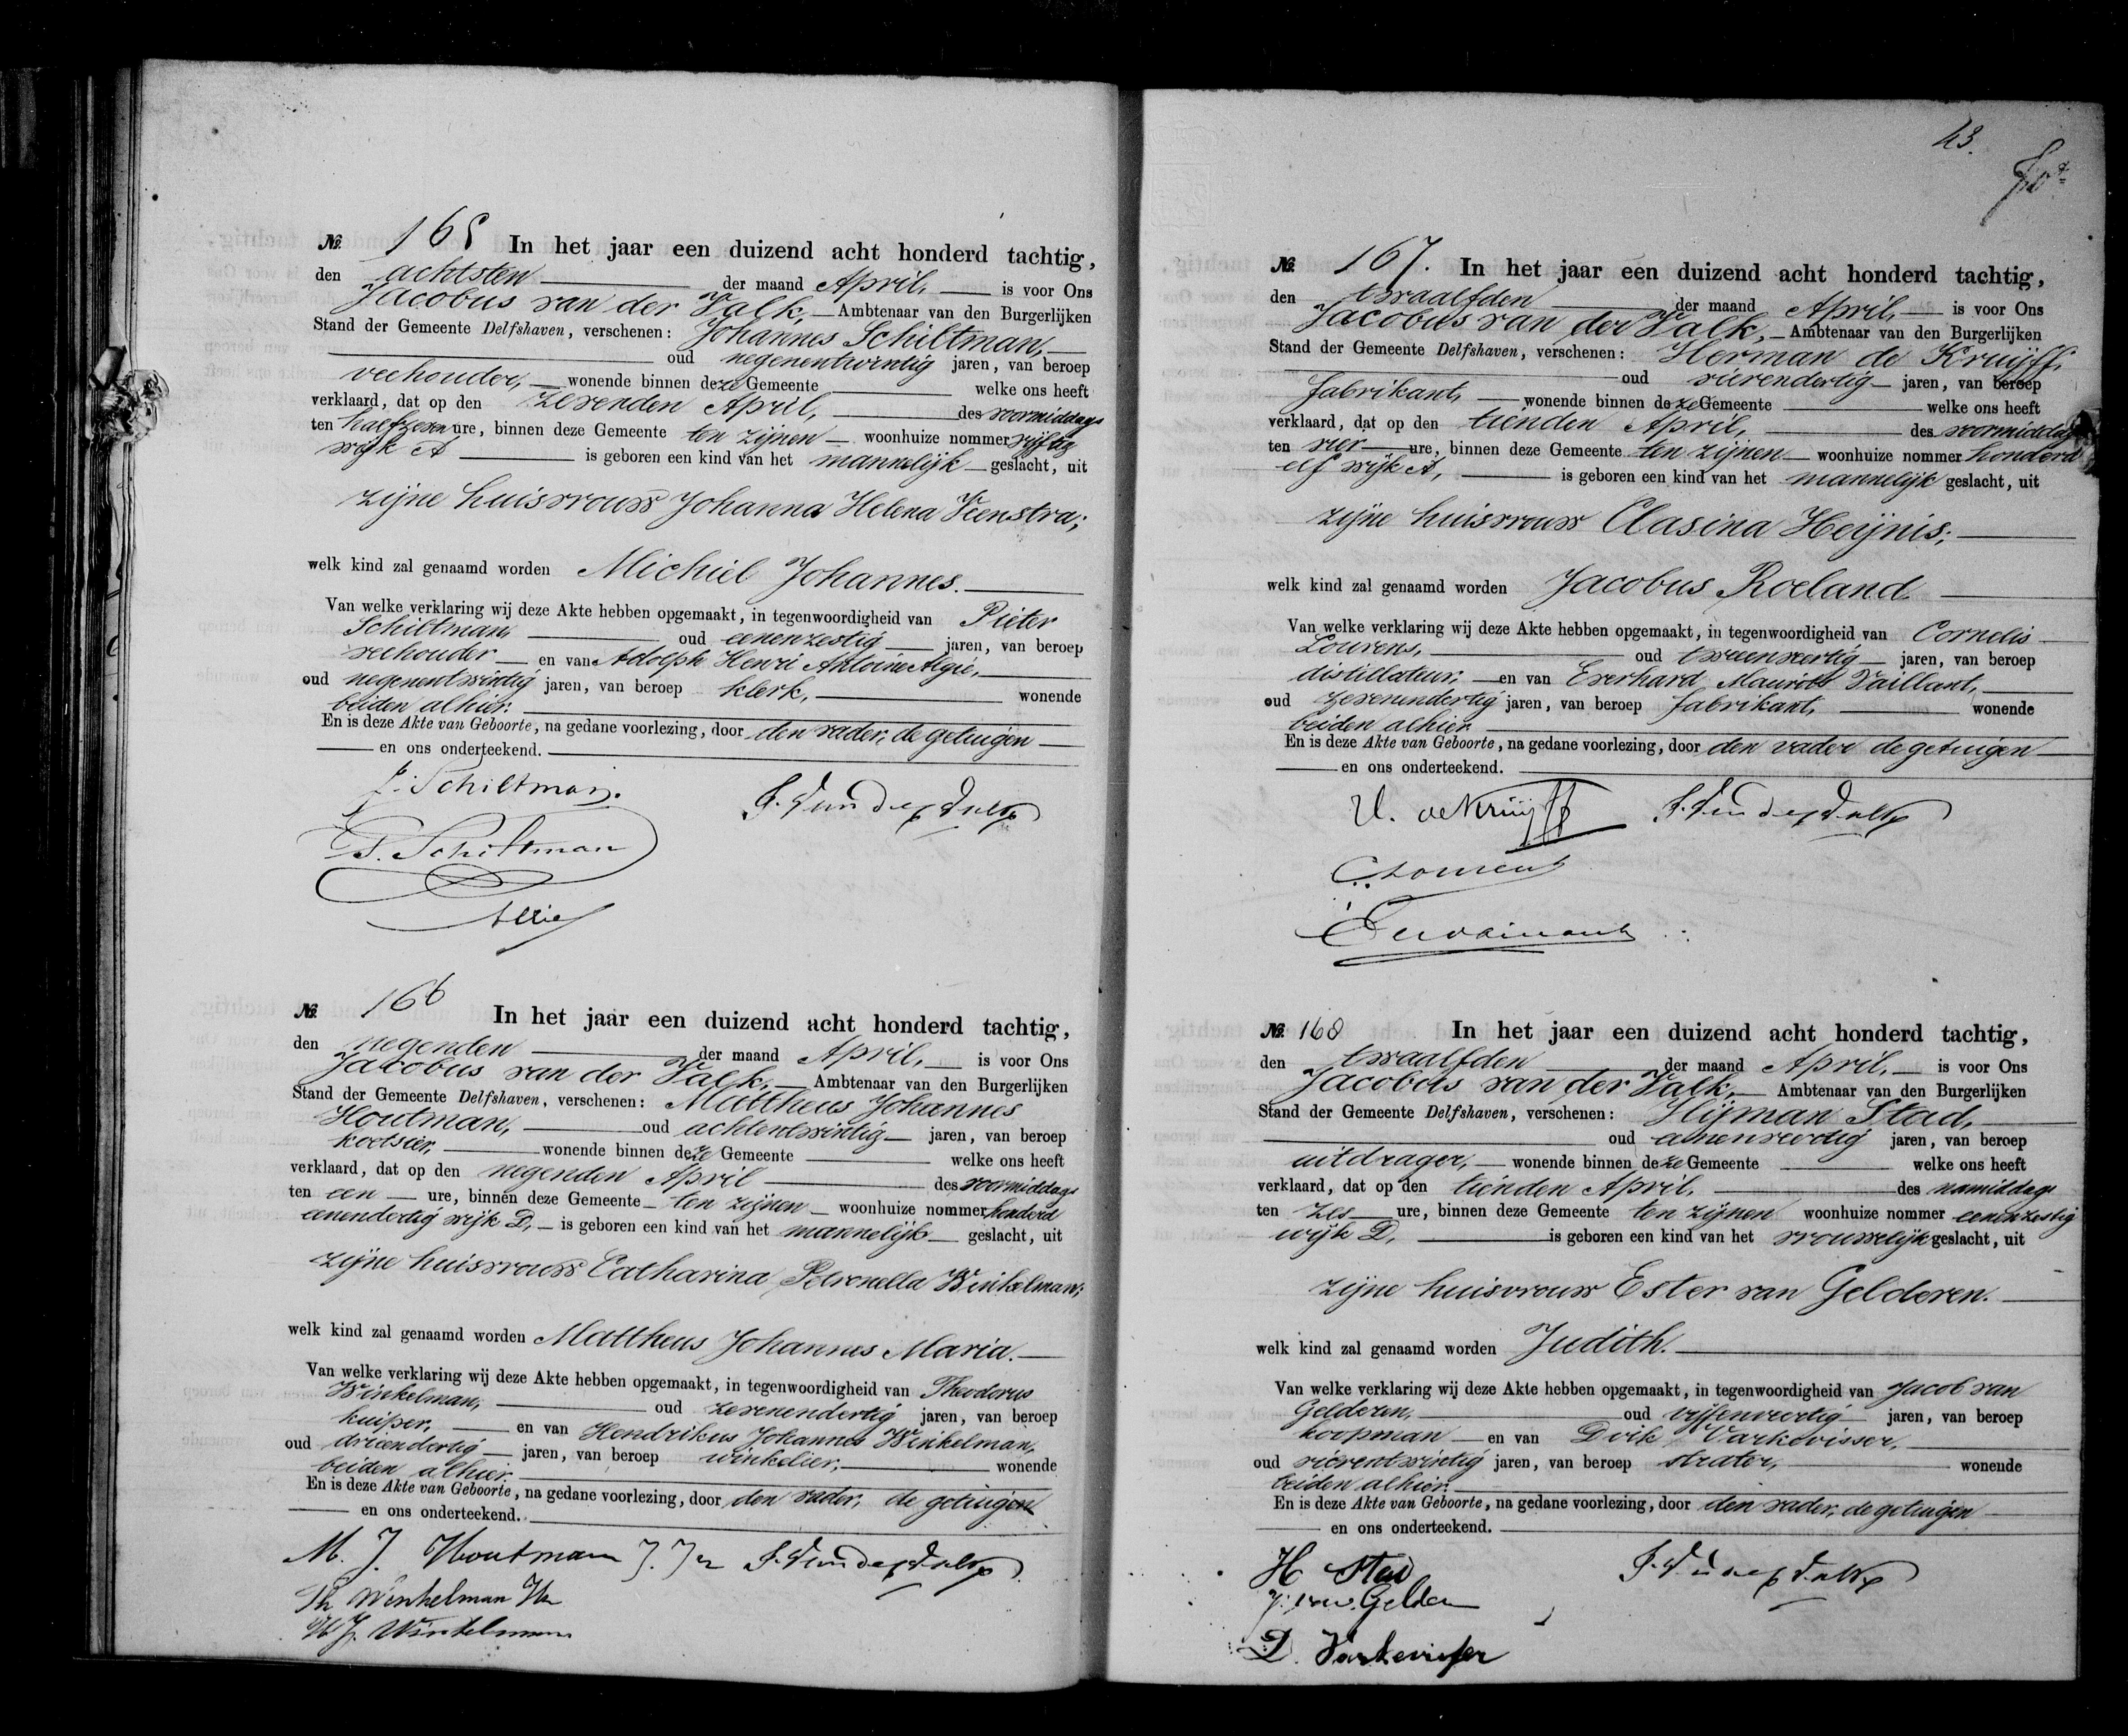 № 165 In het jaar een duizend acht honderd tachtig,
den achtsten der maand April, is voor Ons
Jacobus van der Valk, Ambtenaar van den Burgerlijken
Stand der Gemeente Delfshaven, verschenen: Johannes Schiltman,
oud negenentwintig jaren, van beroep
veehouder, wonende binnen deze Gemeente welke ons heeft
verklaard, dat op den zevenden April, des voormiddags
ten halfzeven ure, binnen deze Gemeente ten zijnen woonhuize nommer vijftig
wijk A is geboren een kind van het mannelijk geslacht, uit
zijne huisvrouw Johanna Helena Veenstra;
welk kind zal genaamd worden Michiel Johannes.
Van welke verklaring wij deze Akte hebben opgemaakt, in tegenwoordigheid van Pieter
Schiltman, oud eenenzestig jaren, van beroep
veehouder en van Adolph Henri Antoine Algie,
oud negenentwintig jaren, van beroep klerk, wonende
beiden alhier.
En is deze Akte van Geboorte, na gedane voorlezing, door den vader, de getuigen
en ons onderteekend.
J. Schiltman.
J. van der Valk
P. Schiltman
№ 166 In het jaar een duizend acht honderd tachtig,
den negenden der maand April, is voor Ons
Jacobus van der Valk, Ambtenaar van den Burgerlijken
Stand der Gemeente Delfshaven, verschenen: Mattheus Johannes
Houtman, oud achtentwintig jaren, van beroep
koetsier, wonende binnen deze Gemeente welke ons heeft
verklaard, dat op den negenden April des voormiddags
ten een ure, binnen deze Gemeente ten zijnen woonhuize nommer honderd
eenendertig wijk D, is geboren een kind van het mannelijk geslacht, uit
zijne huisvrouw Catharina Petronella Winkelman;
welk kind zal genaamd worden Mattheus Johannes Maria.
Van welke verklaring wij deze Akte hebben opgemaakt, in tegenwoordigheid van Theodorus
Winkelman, oud zevenendertig jaren, van beroep
kuiper, en van Hendrikus Johannes Winkelman,
oud drieendertig jaren, van beroep winkelier, wonende
beiden alhier.
En is deze Akte van Geboorte, na gedane voorlezing, door den vader, de getuigen
en ons onderteekend.
M. J. Houtman J. Jz J. van der Valk
Th Winkelman Hz
H J. Winkelman
43.
№ 167. In het jaar een duizend acht honderd tachtig,
den twaalfden der maand April, is voor Ons
Jacobus van der Valk, Ambtenaar van den Burgerlijken
Stand der Gemeente Delfshaven, verschenen: Herman de Kruijff,
oud vierendertig jaren, van beroep
fabrikant, wonende binnen deze Gemeente welke ons heeft
verklaard, dat op den tienden April, des voormiddags
ten vier ure, binnen deze Gemeente ten zijnen woonhuize nommer honderd
elf wijk A, is geboren een kind van het mannelijk geslacht, uit
zijne huisvrouw Clasina Heijnis;
welk kind zal genaamd worden Jacobus Roeland.
Van welke verklaring wij deze Akte hebben opgemaakt, in tegenwoordigheid van Cornelis
Lourens, oud tweenveertig jaren, van beroep
distillateur, en van Everhard Maurits Vaillant,
oud zevenendertig jaren, van beroep fabrikant, wonende
beiden alhier.
En is deze Akte van Geboorte, na gedane voorlezing, door den vader de getuigen
en ons onderteekend.
H. de Kruijff J. van der Valk
C Lourens
№ 168 In het jaar een duizend acht honderd tachtig,
den twaalfden der maand April, is voor Ons
Jacobus van der Valk, Ambtenaar van den Burgerlijken
Stand der Gemeente Delfshaven, verschenen: Hijman Stad,
oud eenenveertig jaren, van beroep
uitdrager, wonende binnen deze Gemeente welke ons heeft
verklaard, dat op den tienden April, des namiddags
ten zes ure, binnen deze Gemeente ten zijnen woonhuize nommer eenenzestig
wijk D, is geboren een kind van het vrouwelijk geslacht, uit
zijne huisvrouw Ester van Gelderen.
welk kind zal genaamd worden Judith.
Van welke verklaring wij deze Akte hebben opgemaakt, in tegenwoordigheid van Jacob van
Gelderen, oud vijfenveertig jaren, van beroep
koopman en van Dirk Varkevisser,
oud vierentwintig jaren, van beroep strater, wonende
beiden alhier.
En is deze Akte van Geboorte, na gedane voorlezing, door den vader, de getuigen
en ons onderteekend.
H Stad J. van der Valk
J. van Gelderen
D. Varkevisser